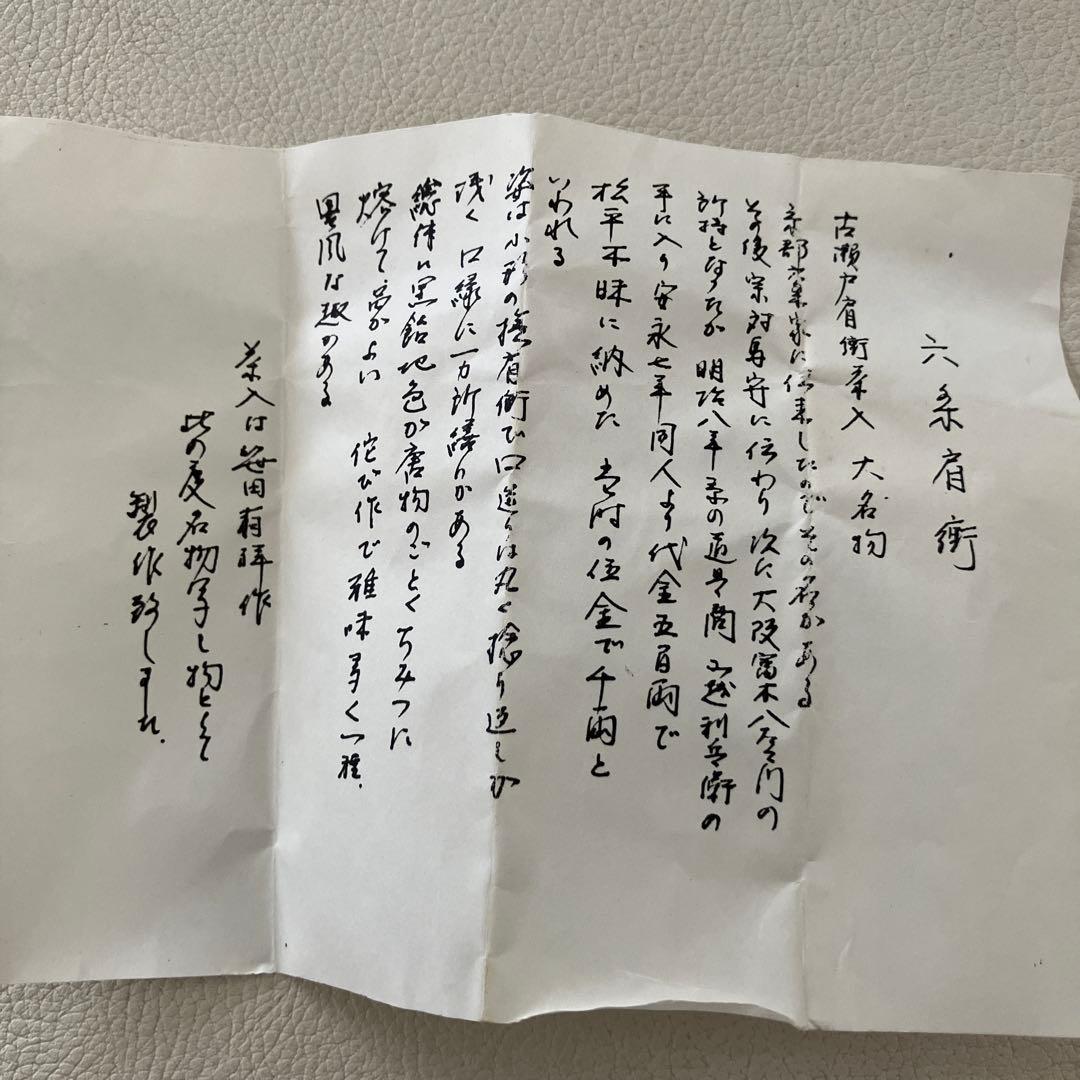 六条肩衝
古瀬戸肩衝茶入 大名物
京都六条家に伝来したのでその名がある
その後宗対馬守に伝わり次に大阪富木八左ヱ門の
所持となったが明治八年茶の道具商山越利兵衛の
手に入り安永七年同人より代金五百両で
松平不昧に納めた 当時の位金で千両と
いわれる
姿は小形の撫肩衝で口造りは丸く捻り返しが
浅く口縁に一カ所繕りがある
総体に黒飴地色が唐物のごとくちみつに
熔けて 侘び作で雅味多く一種
異風な趣がある
茶入は笹田有祥作
此の度名物写し物として
製作致しました.